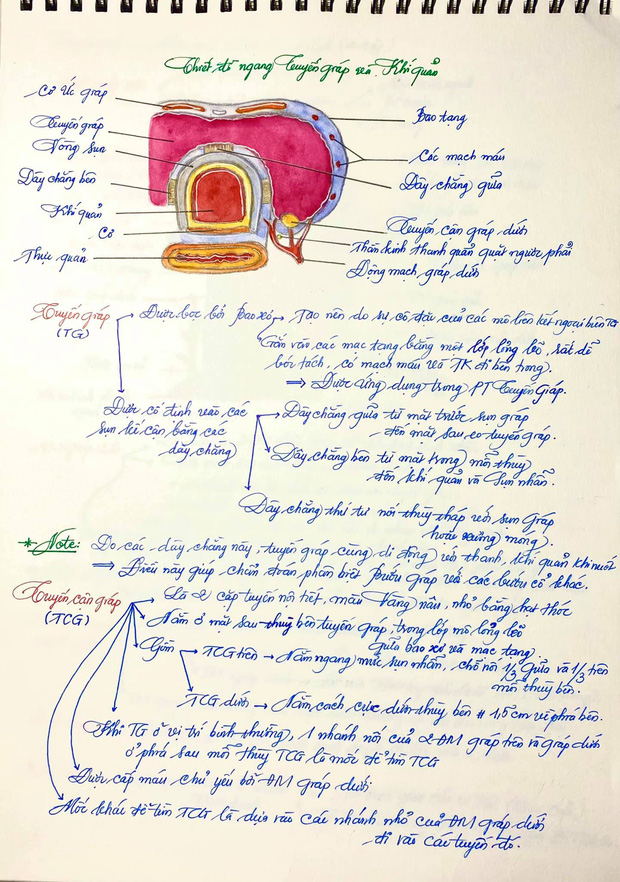 Thiết đồ ngang Tuyến giáp và Khí quản
Cơ ức giáp
Tuyến giáp
Vòng sụn
Dây chằng bên
Khí quản
Cơ
Thực quản
Bao tạng
Các mạch máu
Dây chằng giữa
Tuyến cận giáp dưới
Thần kinh thanh quản quặt ngược phải
Động mạch giáp dưới
Tuyến giáp
(TG)
Được bọc bởi bao xơ
Tạo nên do sự cô đặc của các mô liên kết ngoại biên TG
Gắn vào các mạc tạng bằng một lớp lỏng lẻo, rất dễ
bóc tách, có mạch máu và TK đi bên trong.
⇒ Được ứng dụng trong PT Tuyến Giáp.
Được cố định vào các
sụn kế cận bằng các
dây chằng
Dây chằng giữa từ mặt trước sụn giáp
đến mặt sau eo tuyến giáp.
Dây chằng bên từ mặt trong mỗi thùy
đến khí quản và sụn nhẫn.
Dây chằng thứ tư nối thùy tháp với sụn Giáp
hoặc xương móng.
* Note: Do các dây chằng này, tuyến giáp cùng di động với thanh, khí quản khi nuốt
⇒ Điều này giúp chẩn đoán phân biệt bướu giáp và các bướu cổ khác.
Tuyến cận giáp
(TCG)
Là 2 cặp tuyến nội tiết, màu vàng nâu, nhỏ bằng hạt thóc
Nằm ở mặt sau thùy bên tuyến giáp, trong lớp mô lỏng lẻo
giữa bao xơ và mạc tạng.
Gồm
TCG trên → Nằm ngang mức sụn nhẫn, chỗ nối 1/3 giữa và 1/3 trên
mỗi thùy bên.
TCG dưới → Nằm cách cực dưới thùy bên # 1,5 cm về phía bên.
Khi TG ở vị trí bình thường, 1 nhánh nối của 2 ĐM giáp trên và giáp dưới
ở phía sau mỗi thùy TCG là mốc để tìm TCG
Được cấp máu chủ yếu bởi ĐM giáp dưới
Mốc khác để tìm TCG là dựa vào các nhánh nhỏ của ĐM giáp dưới
đi vào các tuyến đó.